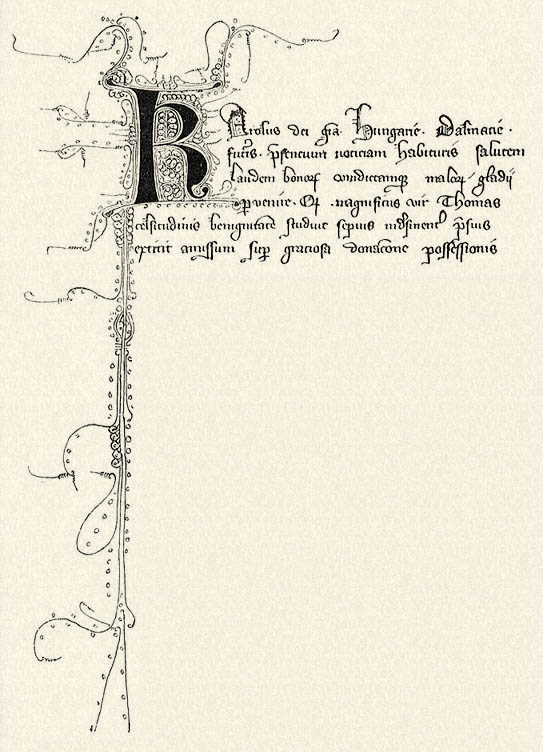 Karolus dei gra. Hungarie. Dalmacie.
futuris. psencium noticiam habituris salutem
laudem bonorum vindictamque malorum gladii
pervenire. magnificus vir Thomas
celsitudinis benignitate studuit sepius
extitit amissum super graciosa donacone possessionis